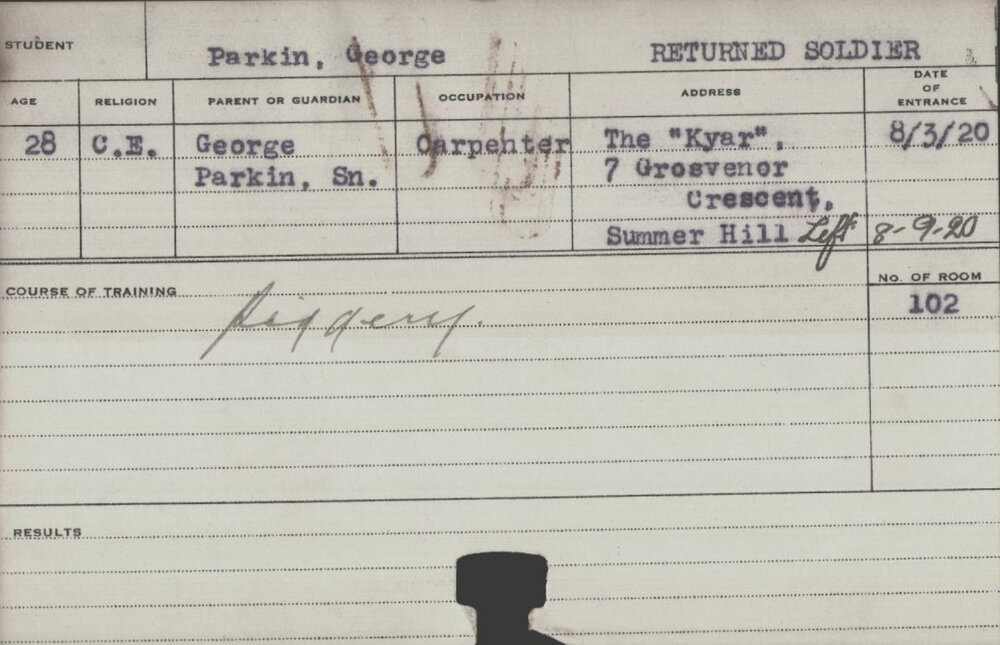 STUDENT Parkin, George RETURNED SOLDIER
AGE RELIGION PARENT OR GUARDIAN OCCUPATION ADDRESS DATE OF ENTRANCE
28 C.E. George Carpenter The "Kyar", 8/3/20
Parkin, Sn. 7 Grosvenor
Crescent,
Summer Hill Left 8-9-20
COURSE OF TRAINING Piggery. NO. OF ROOM
102
RESULTS